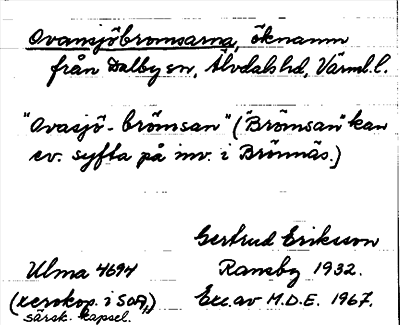 Ovansjöbromsarna, öknamn
från Dalby sn, Älvdals hd, Värml. l.
"Ovasjö-brömsan" ("Brömsan" kan
ev. syfta på inv. i Brönnäs.)
Gertrud Eriksson
Ulma 4694 Ransby 1932.
(xerokop. i SOA,) Exc. av M.D.E. 1967.
särsk. kapsel.